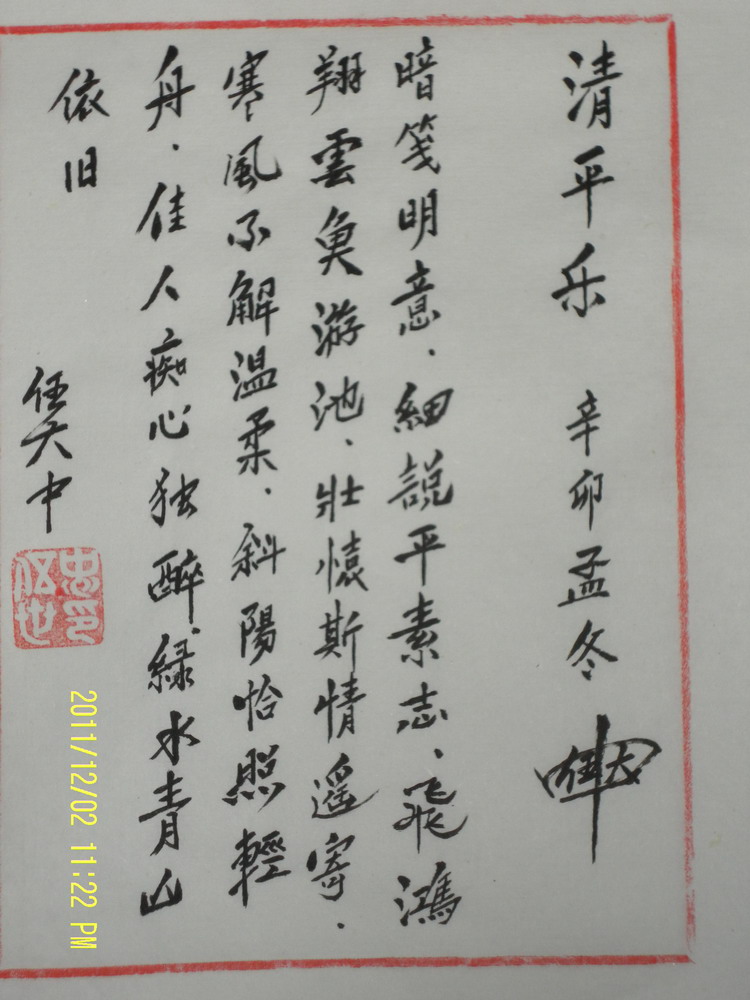 清平乐 辛卯孟冬
暗笺明意．細説平素志．飛鴻
翔雲魚游池．壯懷斯情遥寄．
寒風不解温柔．斜陽恰照輕
舟．佳人痴心独醉緑水青山
依旧
任大中
2011/12/02 11:22 PM